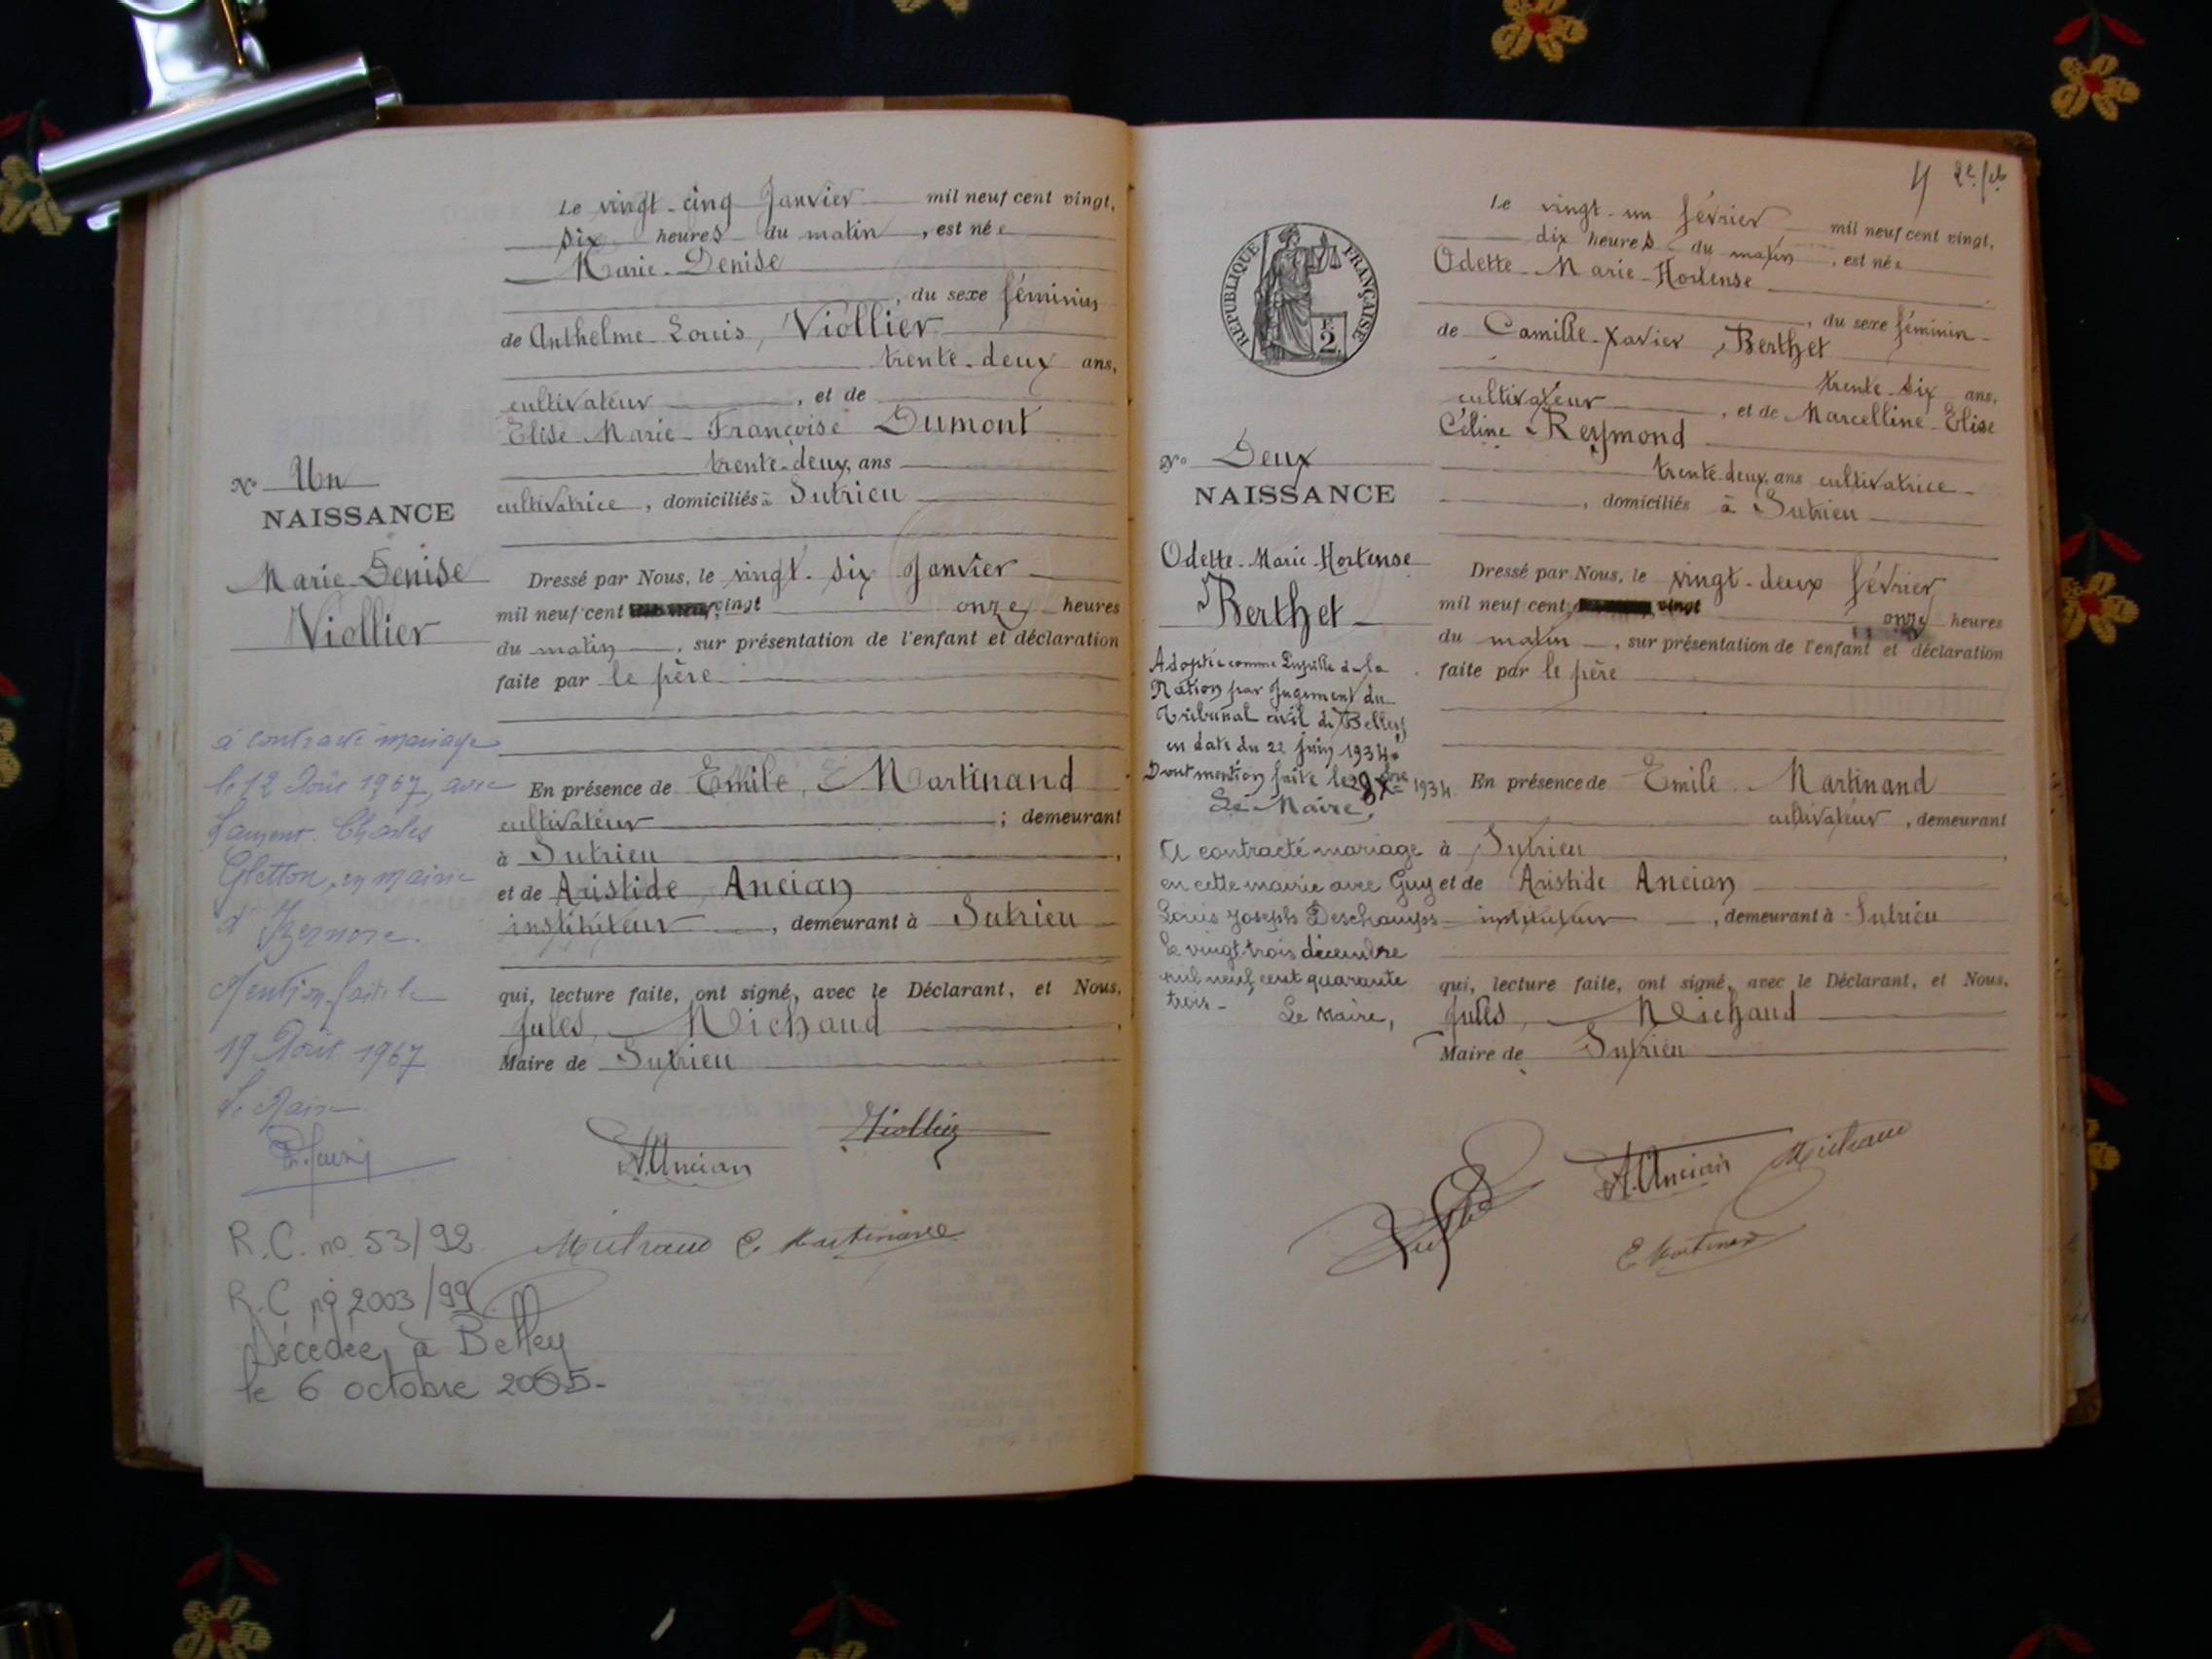 Le vingt-cinq Janvier mil neuf cent vingt,
six heures du matin, est née
Marie-Denise
, du sexe féminin
de Anthelme-Louis, Viollier
trente-deux ans,
cultivateur, et de
Elise-Marie-Françoise Dumont
trente-deux, ans
cultivatrice, domiciliés à Sutrieu
N° Un
NAISSANCE
Marie-Denise
Viollier
Dressé par Nous, le vingt-six Janvier
mil neuf cent vingt onze heures
du matin, sur présentation de l'enfant et déclaration
faite par le père
En présence de Emile, Martinand
cultivateur ; demeurant
à Sutrieu,
et de Aristide, Ancian
instituteur, demeurant à Sutrieu
qui, lecture faite, ont signé, avec le Déclarant, et Nous,
Jules, Michaud,
Maire de Sutrieu
a contracté mariage
le 12 Août 1967, avec
Laurent Charles
en mairie
d'Izernore.
Mention faite le
19 Août 1967
Le Maire
Viollier
A. Ancian
Michaud E. Martinand
R.C. no 53/92
R.C no 2003/99
Décédée à Belley
le 6 octobre 2005-
4 2e f
RÉPUBLIQUE FRANÇAISE
2
Le vingt-un février mil neuf cent vingt,
dix heures du matin, est née
Odette-Marie-Hortense
, du sexe féminin
de Camille-Xavier, Berthet
trente-six ans,
cultivateur, et de Marcelline-Elise
Céline-Reymond
trente deux, ans cultivatrice
, domiciliés à Sutrieu
N° Deux
NAISSANCE
Odette-Marie-Hortense
Berthet
Dressé par Nous, le vingt-deux février
mil neuf cent vingt onze heures
du matin, sur présentation de l'enfant et déclaration
faite par le père
En présence de Emile Martinand
cultivateur, demeurant
à Sutrieu,
et de Aristide Ancian
instituteur, demeurant à Sutrieu
qui, lecture faite, ont signé, avec le Déclarant, et Nous,
Jules, Michaud
Maire de Sutrieu
Adoptée comme Pupille de la
Nation par Jugement du
Tribunal civil de Belley
en date du 22 Juin 1934.
Dont mention faite le 1934
Le Maire,
A contracté mariage
en cette mairie avec Guy
Louis Joseph Deschamps
le vingt trois décembre
mil neuf cent quarante
trois-
Le Maire,
A. Ancian Michaud
E Martinand